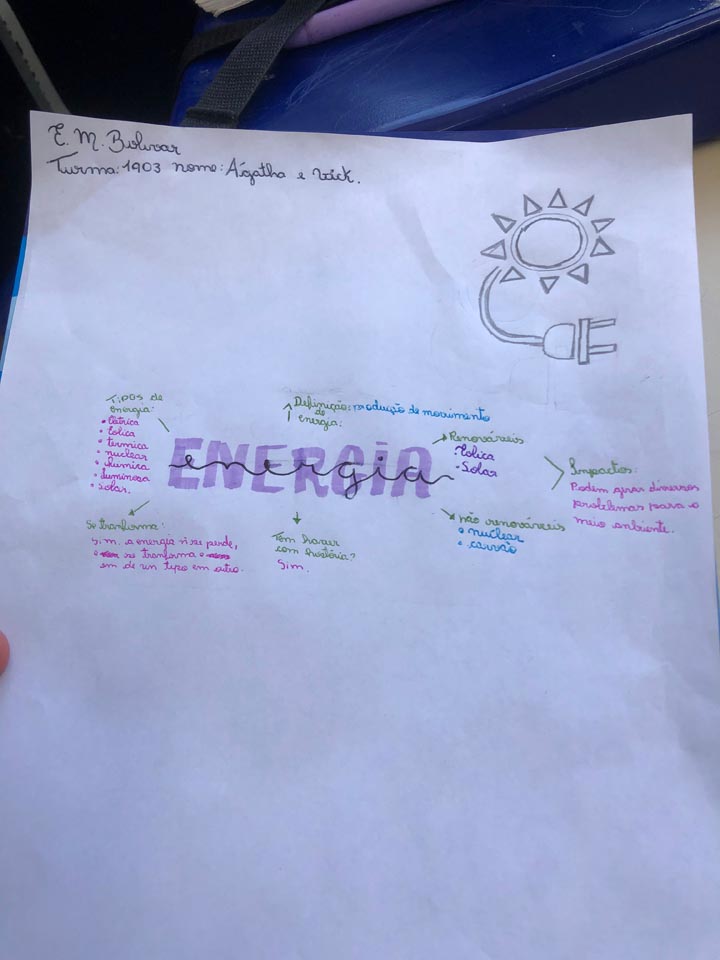 E. M. Bolivar
Turma: 1903 nome: Ágatha e
Tipos de
energia:
• Eólica
• termica
• nuclear
• luminosa
• solar.
Definição: produção de movimento
de
energia:
ENERGIA
energia
Renováveis
Eólica
• Solar
Impactos:
Podem gerar diversos
problemas para o
meio ambiente.
não renováveis
• nuclear
• carvão
Tem haver
com história?
Sim.
Se tranforma:
Sim. a energia ñ se perde,
se tranforma
em de un tipo em outro.